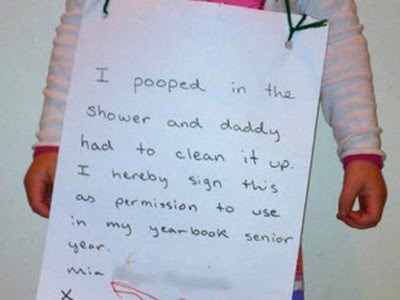 I pooped in the
shower and daddy
had to clean it up.
I hereby sign this
as permission to use
in my yearbook senior
year.
mia
X